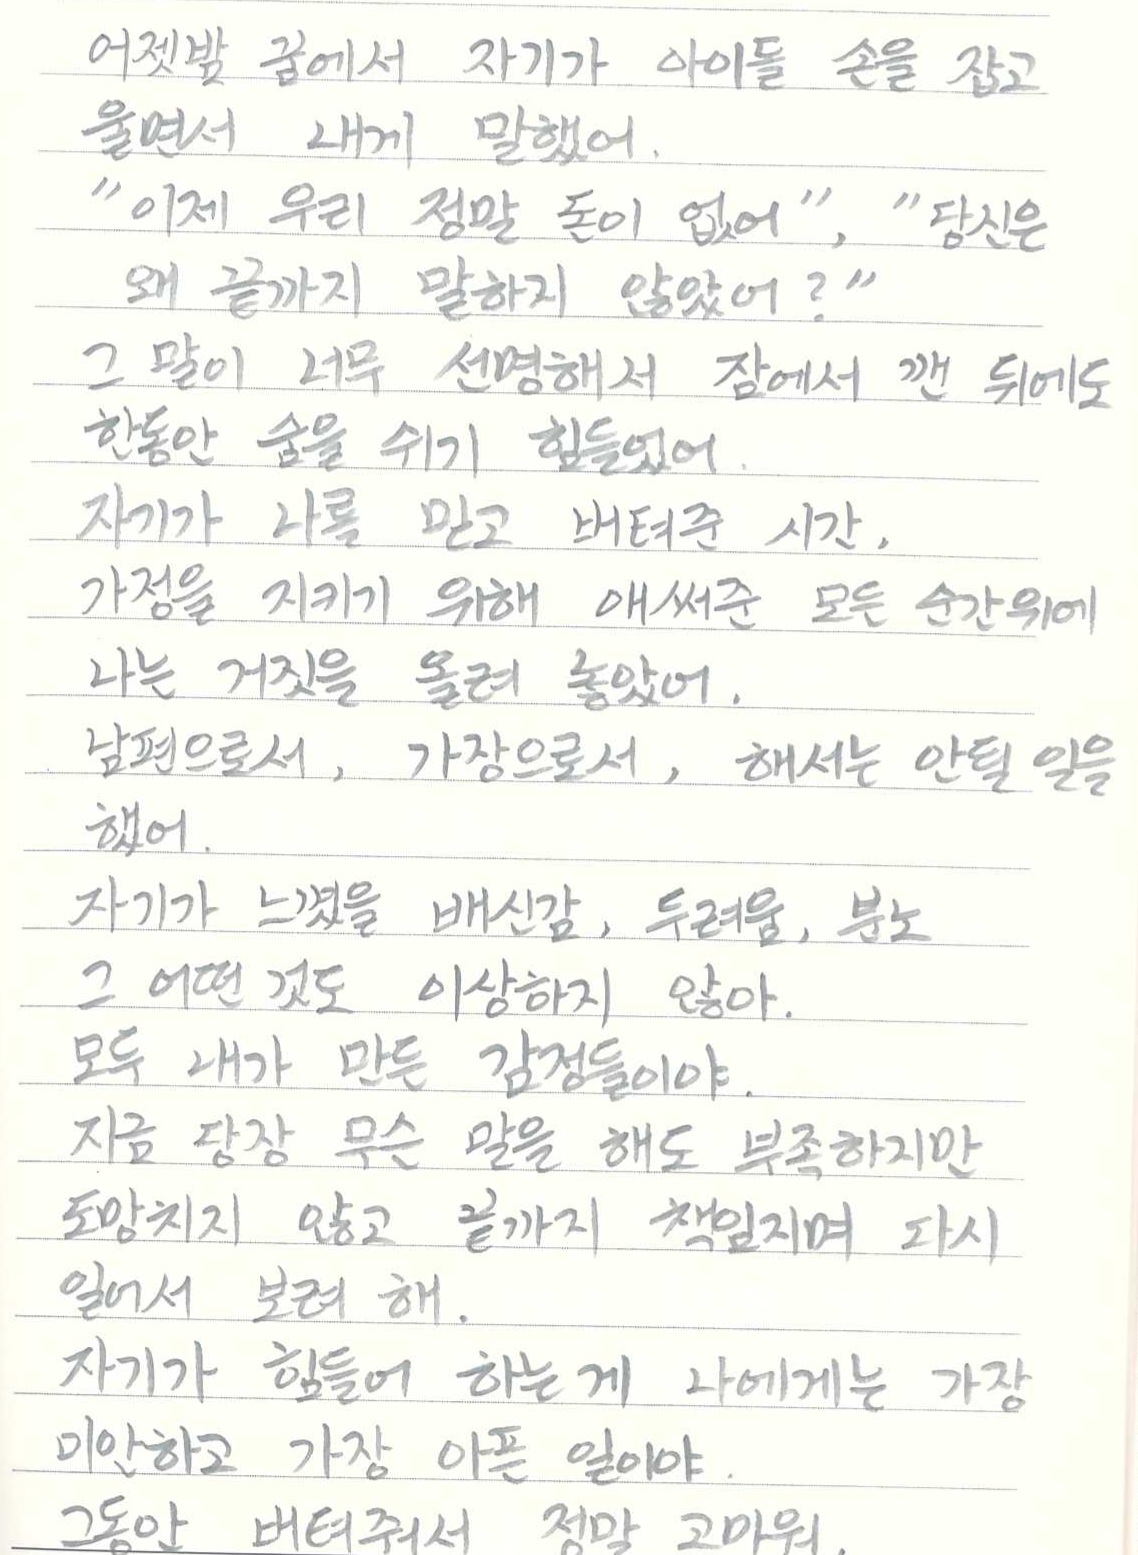 어젯밤 꿈에서 자기가 아이들 손을 잡고
울면서 내게 말했어.
"이제 우리 정말 돈이 없어", "당신은
왜 끝까지 말하지 않았어?"
그 말이 너무 선명해서 잠에서 깬 뒤에도
한동안 숨을 쉬기 힘들었어.
자기가 나를 믿고 버텨준 시간,
가정을 지키기 위해 애써준 모든 순간위에
나는 거짓을 올려 놓았어.
남편으로서, 가장으로서, 해서는 안될 일을
했어.
자기가 느꼈을 배신감, 두려움, 분노
그 어떤 것도 이상하지 않아.
모두 내가 만든 감정들이야.
지금 당장 무슨 말을 해도 부족하지만
도망치지 않고 끝까지 책임지며 다시
일어서 보려 해.
자기가 힘들어 하는게 나에게는 가장
미안하고 가장 아픈 일이야.
그동안 버텨줘서 정말 고마워.